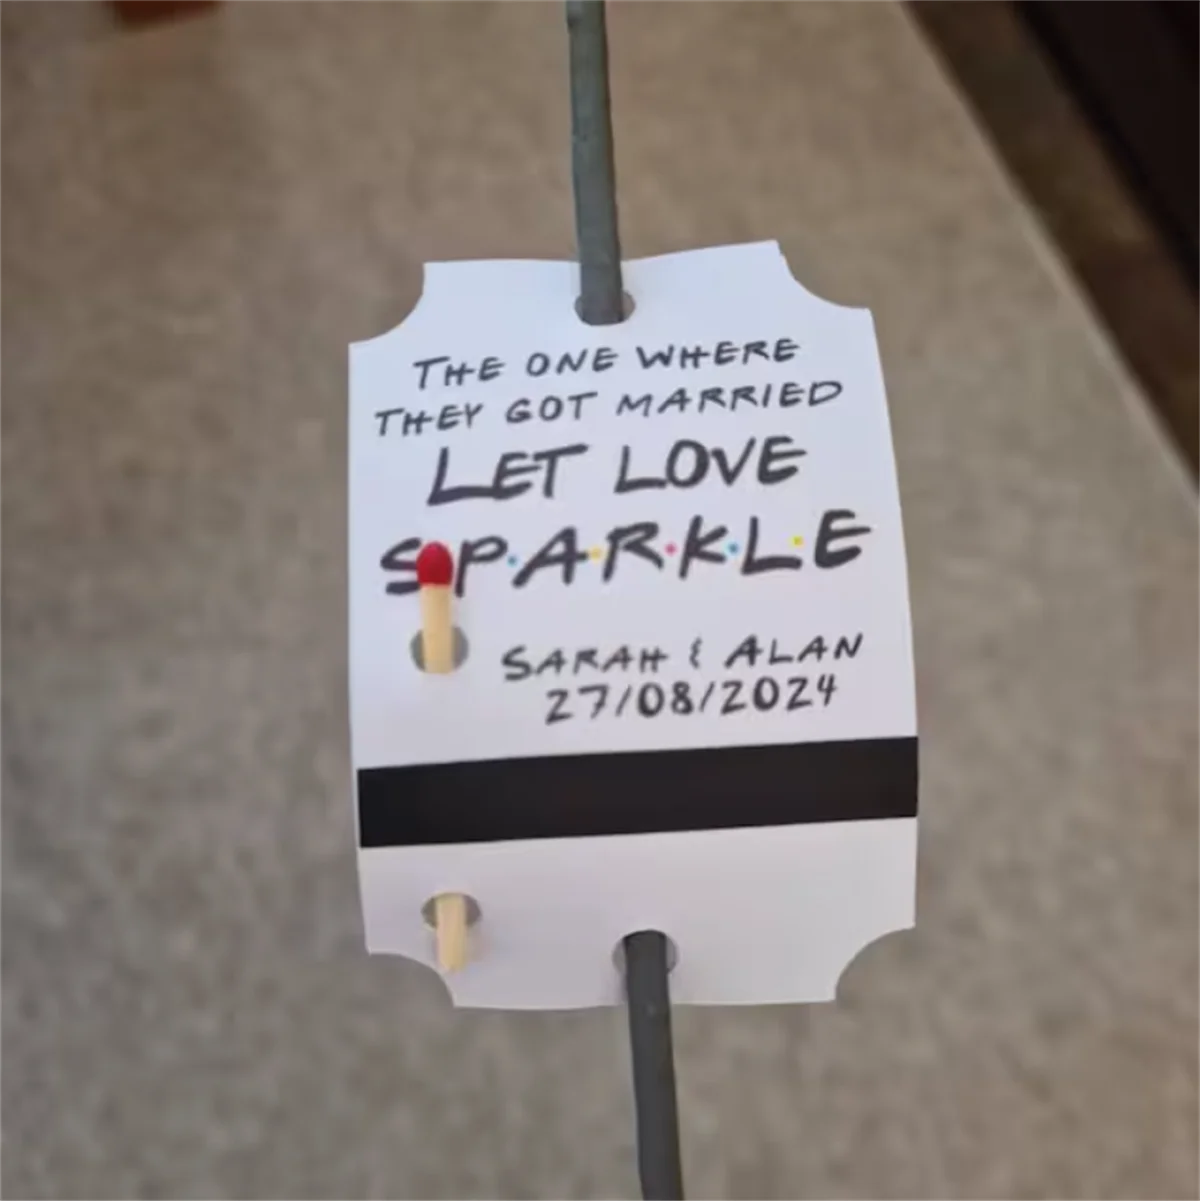 THE ONE WHERE
THEY GOT MARRIED
LET LOVE
S·P·A·R·K·L·E
SARAH & ALAN
27/08/2024